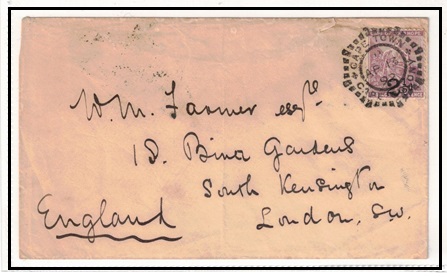 CAPE TOWN
2
W. M. Farmer esqr.
18. Bina Gardens
South Kensington
England London. S.W.